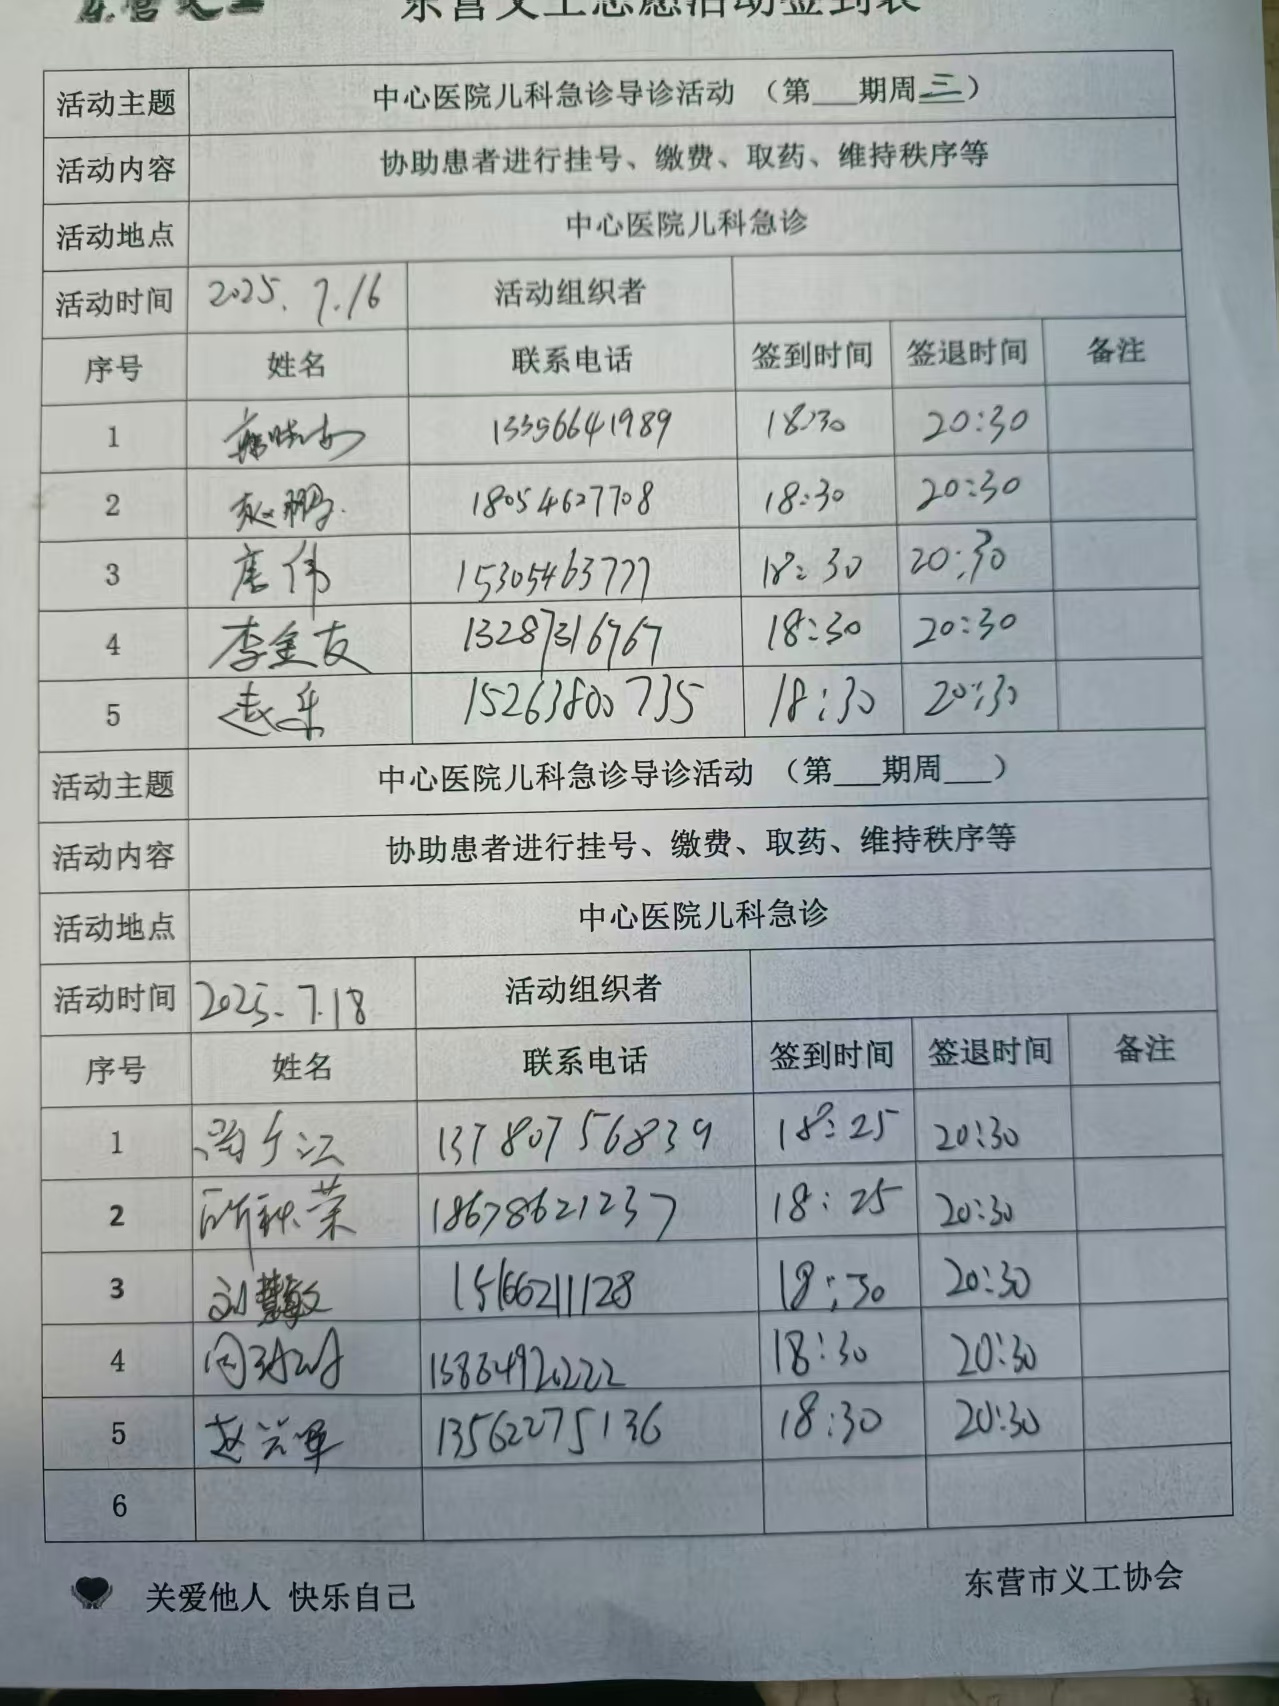 东营义工志愿活动签到表
活动主题 中心医院儿科急诊导诊活动 （第___期周三）
活动内容 协助患者进行挂号、缴费、取药、维持秩序等
活动地点 中心医院儿科急诊
活动时间 2025.7.16 活动组织者
序号 姓名 联系电话 签到时间 签退时间 备注
1 13356641989 18:30 20:30
2 赵鹏 18054627708 18:30 20:30
3 唐伟 15305463777 18:30 20:30
4 李金友 13287316767 18:30 20:30
5 赵乐 15263800735 18:30 20:30
活动主题 中心医院儿科急诊导诊活动 （第___期周___）
活动内容 协助患者进行挂号、缴费、取药、维持秩序等
活动地点 中心医院儿科急诊
活动时间 2025.7.18 活动组织者
序号 姓名 联系电话 签到时间 签退时间 备注
1 13780756839 18:25 20:30
2 18678621237 18:25 20:30
3 刘慧敏 15166211128 18:30 20:30
4 20:30 18:30
5 13562275136 18:30 20:30
6
关爱他人 快乐自己
东营市义工协会